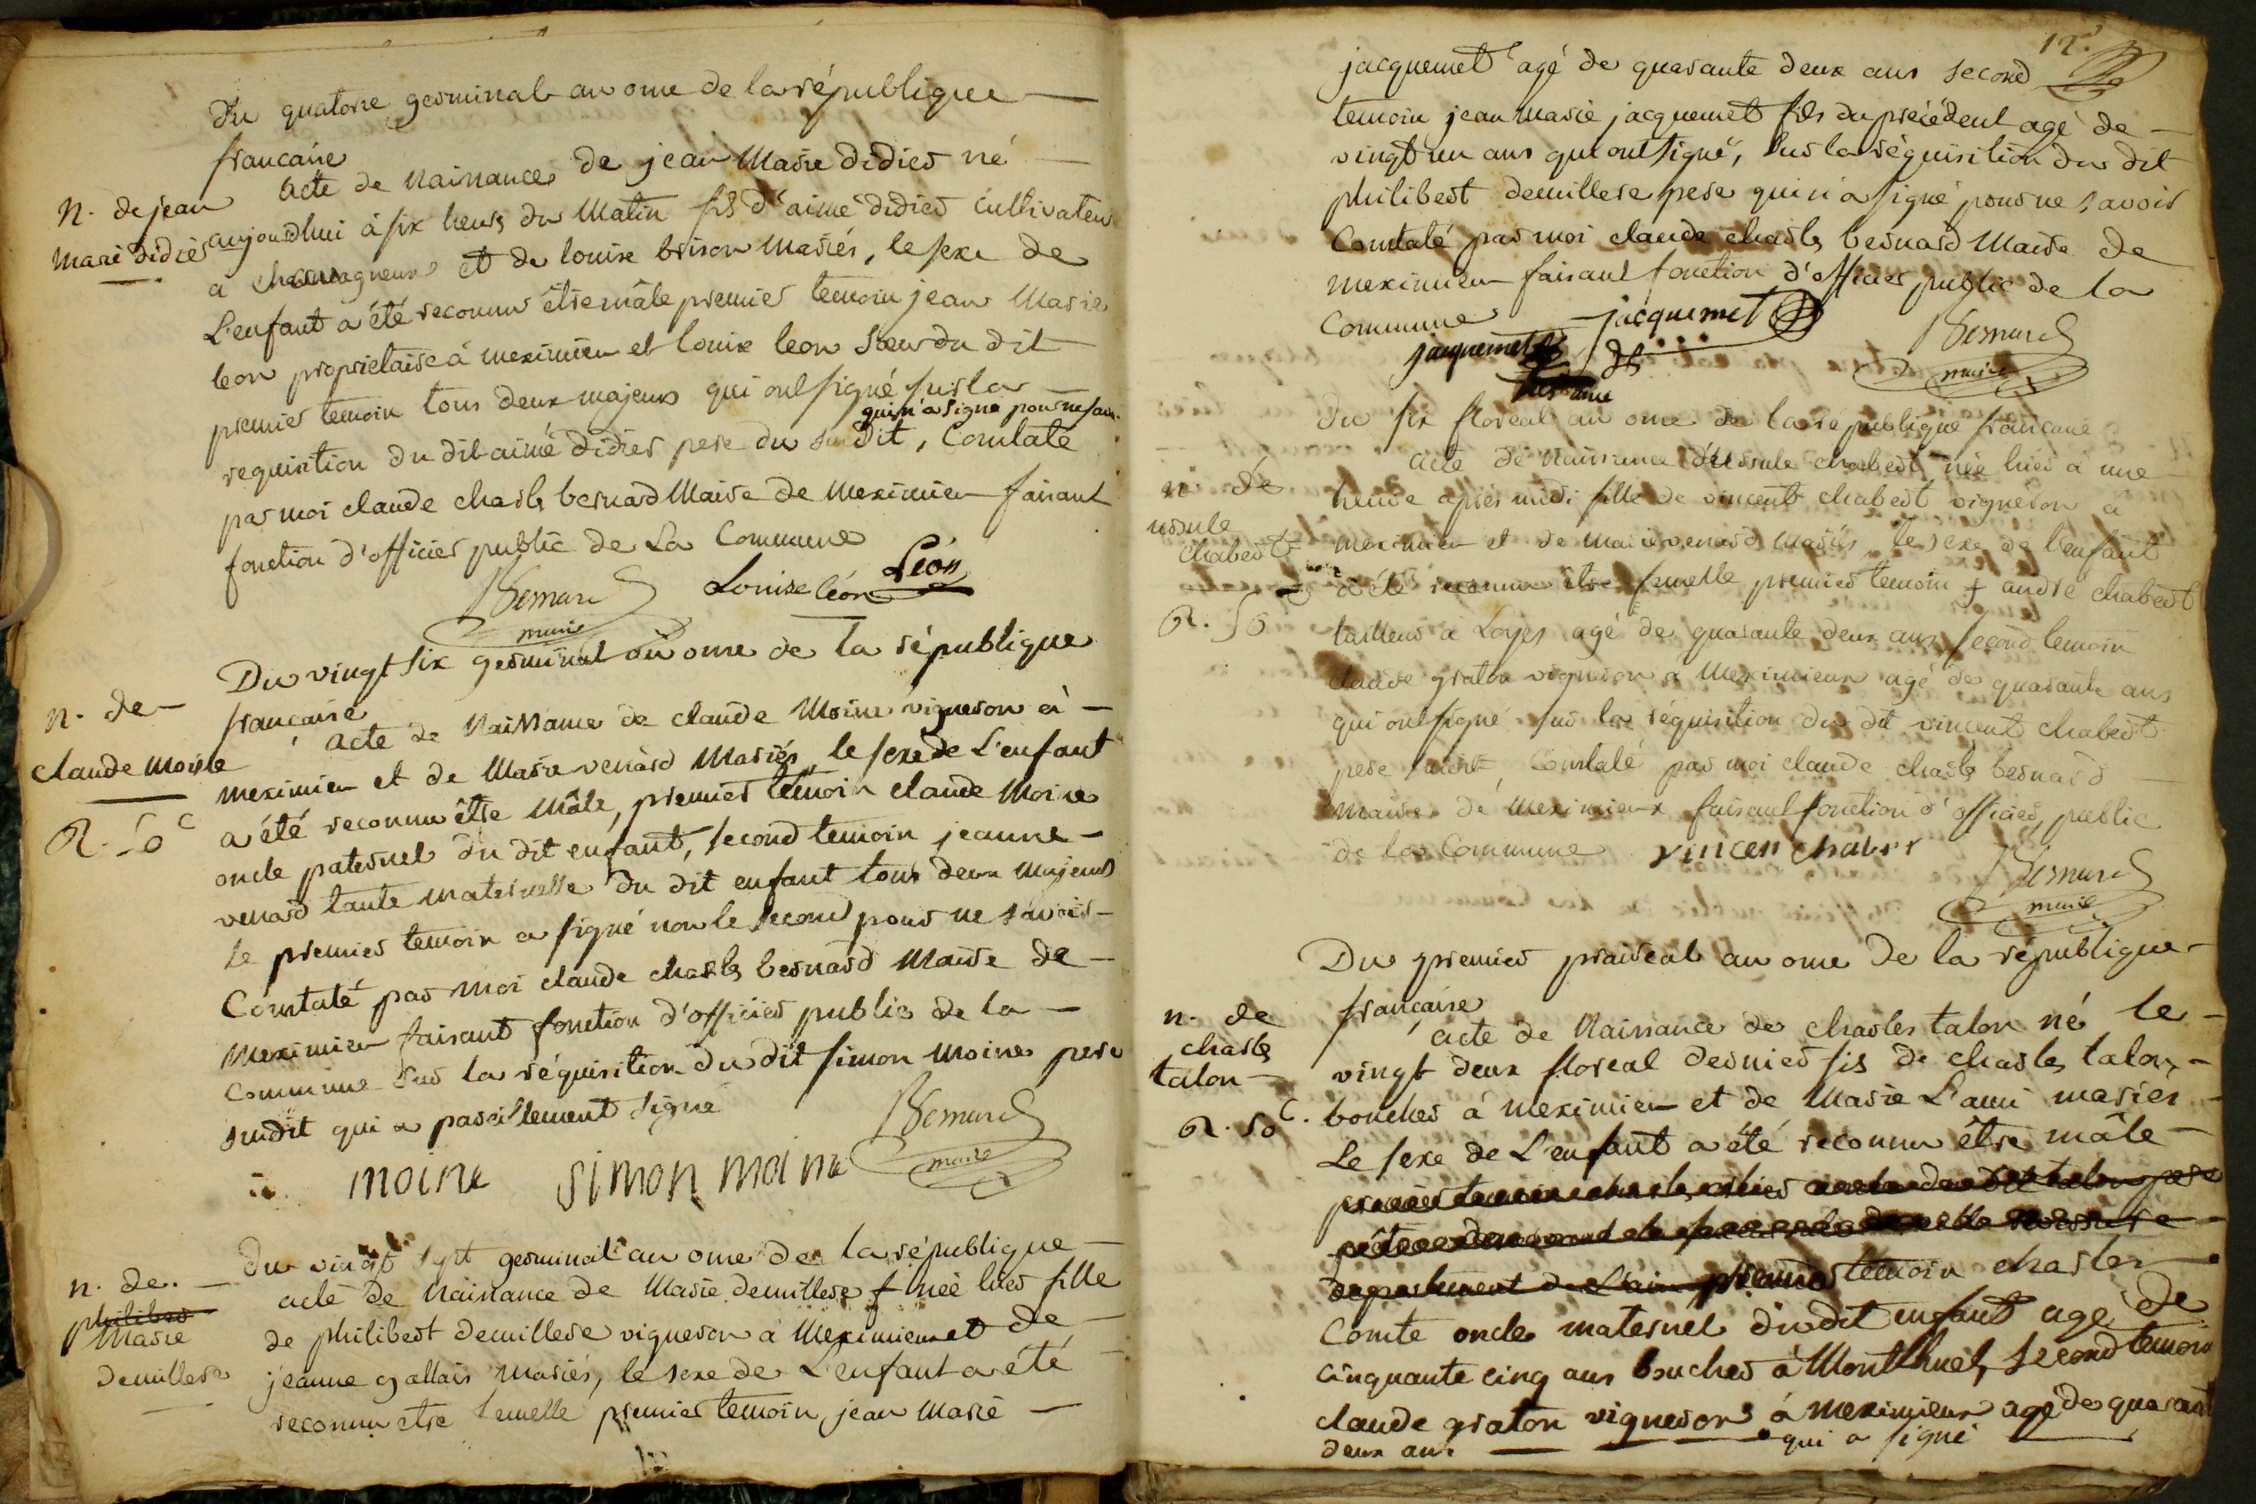 Du quatorze germinal an onze de la république
francaise
n. de jean
mari didier
acte de naissance de jean marie didier né
aujourdhui à six heurs du matin fils d'aimé didier cultivateur
a charnagneux et de louise brison mariés, le sexe de
L'enfant a été reconnu être mâle premier temoin jean marie
leon proprietaire à meximieu et louise leon sœur du dit
premier temoin tous deux majeurs qui ont signé sur la
qui n'a signé pour ne savoir
requisition du dit aimé didier pere du sudit, Constaté
par moi claude charls bernard maire de meximieu faisant
fonction d'officier public de La Commune
Bernard maire Louise léon Léon
Du vingt six germinal an onze de la république
française
n. de
claude moine
R. 50 c
acte de naissance de claude moine vigneron à
meximieu et de marie venard mariés, le sexe de L'enfant
a été reconnu être mâle, premier temoin claude moine
oncle paternel du dit enfant, second temoin jeanne
venard tante maternelle du dit enfant tous deux majeurs
le premier temoin a signé non le second pour ne savoir
Constaté par moi claude charls bernard maire de
meximieu faisant fonction d'officier public de la
commune sur la réquisition du dit simon moine pere
sudit qui a pareillement signé
moine simon moine Bernard maire
Du vingt sept germinal an onze de la république
n. de
philibert
marie
demillere
acte de naissance de marie demillere née hier fille
de philibert demillere vigneron à meximieu et de
jeanne gallais mariés, le sexe de L'enfant a été
reconnu etre femelle premier temoin jean marie
12.
jacquemet agé de quarante deux ans second
temoin jean marie jacquemet fils du précédent agé de
vingt un ans qui ont signé, sur la réquisition du dit
philibert demillere pere qui n'a signé pour ne savoir
Constaté par moi claude charls bernard maire de
meximieu faisant fonction d'officier public de la
Commune
jacquemet jacquemet fils Bernard maire
Du six floreal an onze de la république française
n. de
ursule
chabert
R. 50
acte de naissance d'ursule chabert née hier à une
heure après midi fille de vincent chabert vigneron à
meximieu et de marie venard mariés, le sexe de l'enfant
a été reconnu être femelle premier temoin andré chabert
tailleur à Loyes agé de quarante deux ans second temoin
claude graton vigneron à meximieux agé de quarante ans
qui ont signé sur la réquisition du dit vincent chabert
pere sudit, Constaté par moi claude charls bernard
maire de meximieux faisant fonction d'officier public
de la Commune vincen chaber
Bernard maire
Du premier prairéal an onze de la république
française
n. de
charls
talon
R. 50 c.
acte de naissance de charles talon né le
vingt deux floreal dernier fils de charles talon
boucher à meximieu et de marie L'ami mariés
Le sexe de L'enfant a été reconnu être mâle
departement de L'ain premier temoin charles
Comte oncle maternel du dit enfant agé de
cinquante cinq ans boucher à Montluel, second temoin
claude graton vigneron à meximieux agé de quarante
deux ans qui a signé